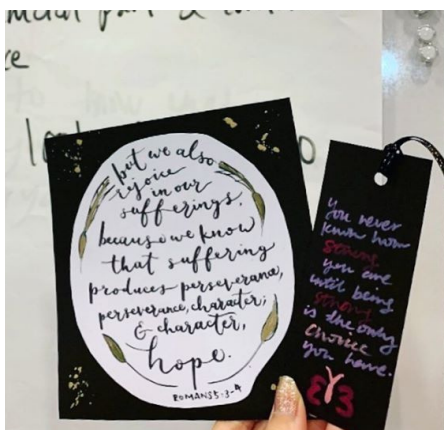 but we also
rejoice
in our
sufferings,
because we know
that suffering
produces perseverance,
perseverance, character;
& character,
hope.
ROMANS 5:3-4
you never
know how
strong
you are
until being
strong
is the only
choice
you have.